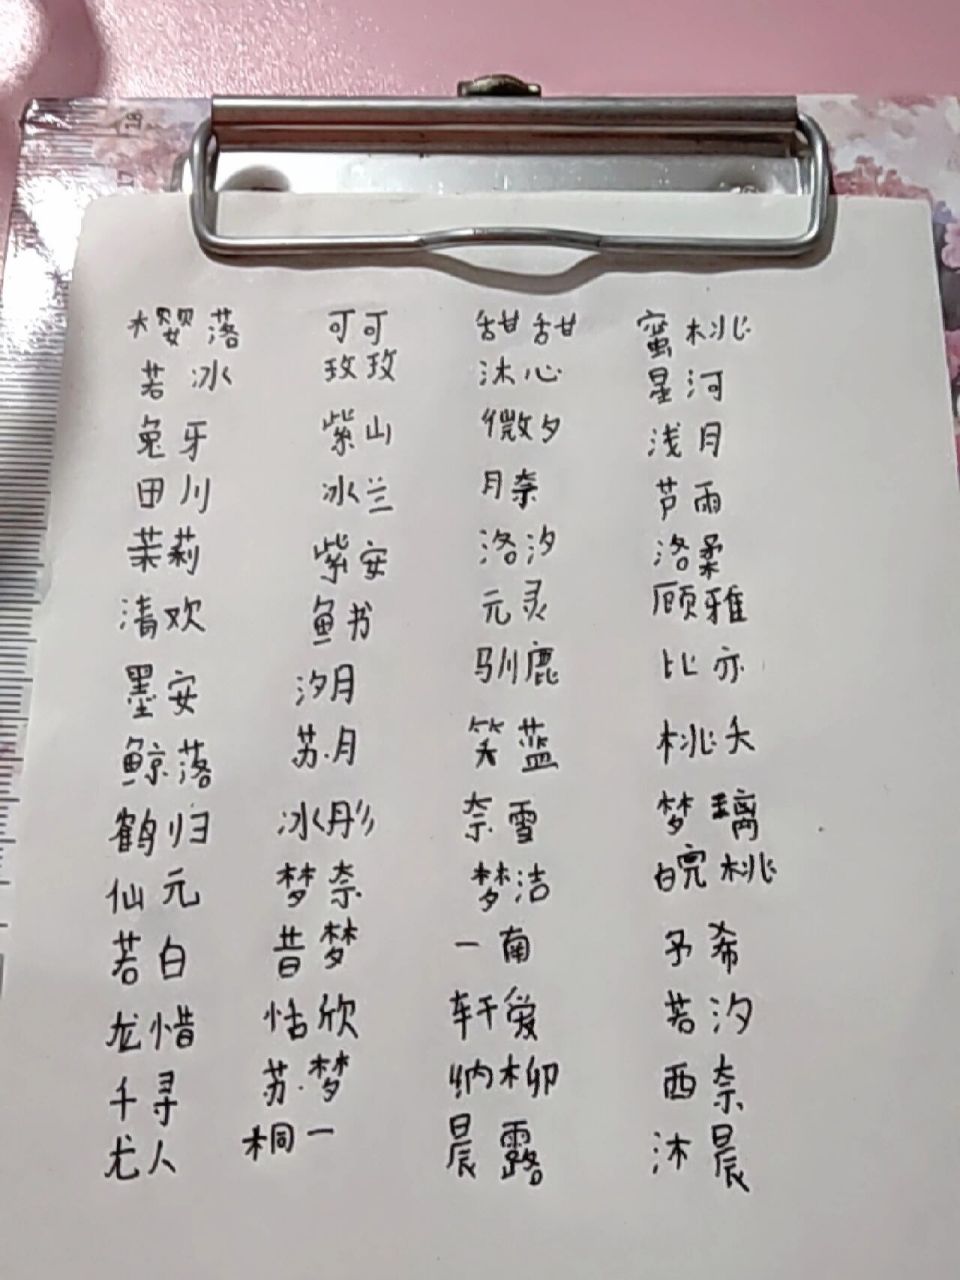 樱落 可可 甜甜 蜜桃
若冰 玫玫 沐心 星河
兔牙 紫山 微夕 浅月
田川 冰兰 月奈 芦雨
茉莉 紫安 洛汐 洛柔
清欢 鱼书 元灵 顾雅
墨安 汐月 驯鹿 比亦
鲸落 苏月 笑蓝 桃夭
鹤归 冰彤 奈雪 梦璃
仙元 梦奈 梦洁 皖桃
若白 昔梦 一南 予希
龙惜 恬欣 轩爱 若汐
千寻 苏梦 纳柳 西奈
尤人 桐一 晨露 沐晨